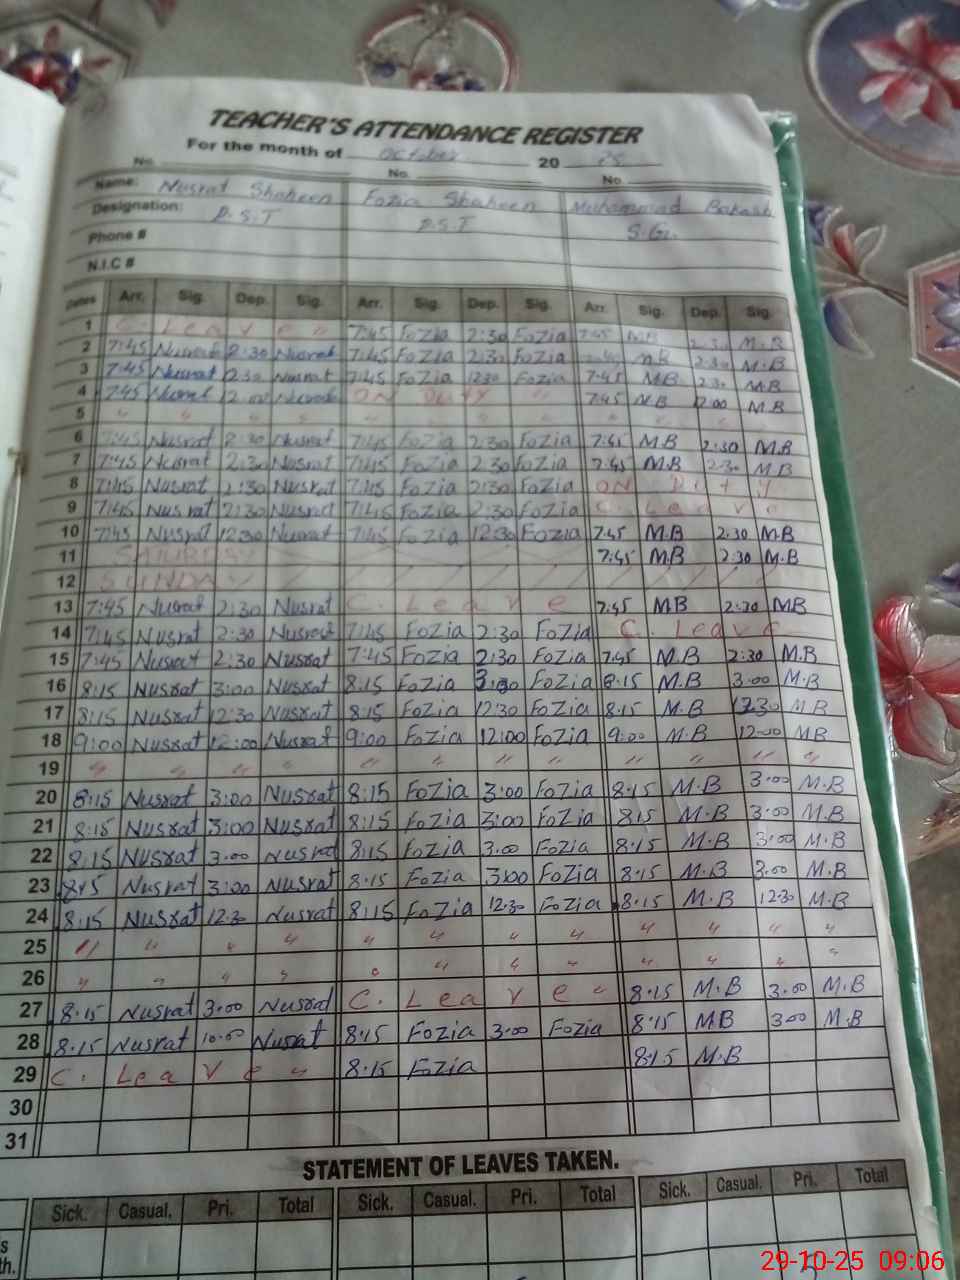 TEACHER'S ATTENDANCE REGISTER
For the month of October 20 25
No. No. No.
Name: Nusrat Shaheen Fozia Shaheen Muhammad Bakash
Designation: P.S.T P.S.T S.G.
Phone #
N.I.C #
Dates Arr. Sig. Dep. Sig. Arr. Sig. Dep. Sig. Arr. Sig. Dep. Sig.
1 C. Leave " 7:45 Fozia 2:30 Fozia 7:45 MB 2:30 M.B
2 7:45 Nusrat 2:30 Nusrat 7:45 Fozia 2:30 Fozia MB 2:30 M.B
3 7:45 Nusrat 12:30 Nusrat 7:45 Fozia 12:30 Fozia 7:45 MB 2:30 M.B
4 7:45 Nusrat 12:00 Nusrat ON Duty " 7:45 MB 12:00 M.B
5 " " " " " " " "
6 7:45 Nusrat 2:30 Nusrat 7:45 Fozia 2:30 Fozia 7:45 M.B 2:30 M.B
7 7:45 Nusrat 2:30 Nusrat 7:45 Fozia 2:30 Fozia 7:45 M.B 2:30 M.B
8 7:45 Nusrat 2:30 Nusrat 7:45 Fozia 2:30 Fozia ON Duty
9 7:45 Nusrat 2:30 Nusrat 7:45 Fozia 2:30 Fozia C. Leave
10 7:45 Nusrat 12:30 Nusrat 7:45 Fozia 12:30 Fozia 7:45 M.B 2:30 M.B
11 SATURDAY 7:45 M.B 2:30 M.B
12 SUNDAY
13 7:45 Nusrat 2:30 Nusrat C. Leave 7:45 MB 2:30 MB
14 7:45 Nusrat 2:30 Nusrat 7:45 Fozia 2:30 Fozia C. Leave
15 7:45 Nusrat 2:30 Nusrat 7:45 Fozia 2:30 Fozia 7:45 M.B 2:30 M.B
16 8:15 Nusrat 3:00 Nusrat 8:15 Fozia 3:00 Fozia 8:15 M.B 3:00 M.B
17 8:15 Nusrat 12:30 Nusrat 8:15 Fozia 12:30 Fozia 8:15 M.B 12:30 MB
18 9:00 Nusrat 12:00 Nusrat 9:00 Fozia 12:00 Fozia 9:00 M.B 12:00 MB
19 " " " " " " " " " " " "
20 8:15 Nusrat 3:00 Nusrat 8:15 Fozia 3:00 Fozia 8:15 M.B 3:00 M.B
21 8:15 Nusrat 3:00 Nusrat 8:15 Fozia 3:00 Fozia 8:15 M.B 3:00 M.B
22 8:15 Nusrat 3:00 Nusrat 8:15 Fozia 3:00 Fozia 8:15 M.B 3:00 M.B
23 8:15 Nusrat 3:00 Nusrat 8:15 Fozia 3:00 Fozia 8:15 M.B 3:00 M.B
24 8:15 Nusrat 12:30 Nusrat 8:15 Fozia 12:30 Fozia 8:15 M.B 12:30 M.B
25 " " " " " " " " " " " "
26 " " " " " " " " " " " "
27 8:15 Nusrat 3:00 Nusrat C. Leave " 8:15 M.B 3:00 M.B
28 8:15 Nusrat 10:00 Nusrat 8:15 Fozia 3:00 Fozia 8:15 MB 3:00 M.B
29 C. Leave " 8:15 Fozia 8:15 M.B
30
31
STATEMENT OF LEAVES TAKEN.
Sick. Casual. Pri. Total Sick. Casual. Pri. Total Sick. Casual. Pri. Total
29-10-25 09:06